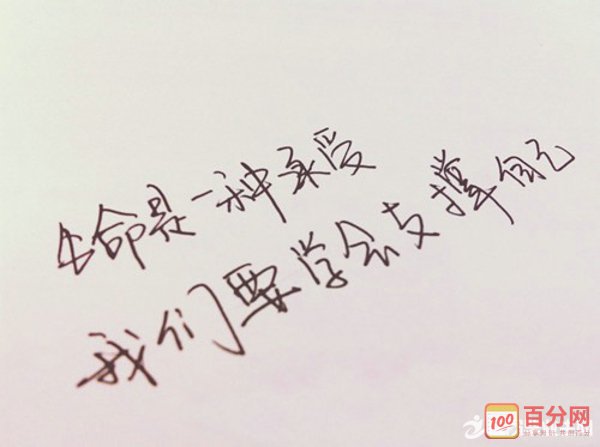 生命是一种承受
我们要学会支撑自己
100 百分网